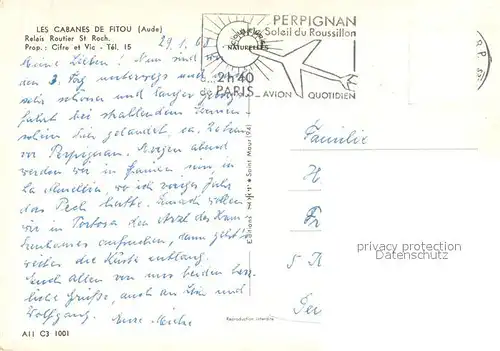 LES CABANES DE FITOU (Aude)
Relais Routier St Roch.
Prop.: Cifre et Vic - Tél. 15
PERPIGNAN
Soleil du Roussillon
NATURELLES
2h40
de PARIS
AVION QUOTIDIEN
29.1.68
Meine Lieben! Nun sind wir
den 3. Tag unterwegs und
sehr schöner und langer
fahrt bei strahlendem Sonnen-
schein hier gelandet, ca.
vor Perpignan. Morgen abend
werden wir in Spanien sein, in
La Ametlla, wo ich voriges Jahr
das Pech hatte. Danach wollen
wir in Tortosa den Arzt des Kran-
kenhauses aufsuchen, dann geht's
weiter die Küste entlang.
Euch allen von uns beiden herz-
liche Grüße, auch an und
Wolfgang.
Familie
H
Fr
5 R
Reproduction interdite
privacy protection
Datenschutz
A11 C3 1001